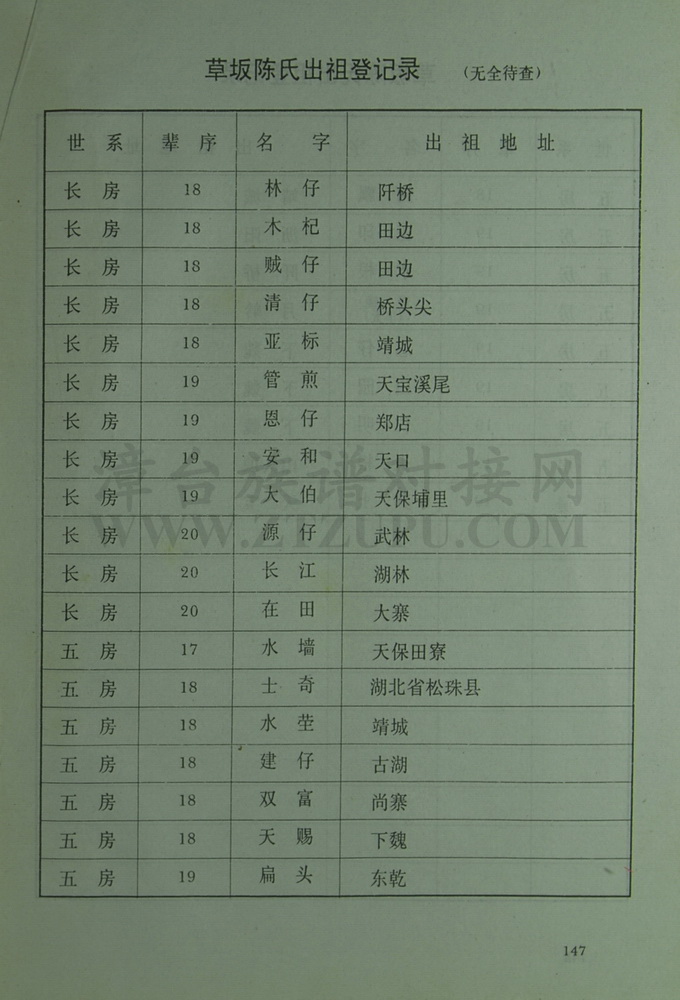 草坂陈氏出祖登记录 (无全待查)
世系 辈序 名字 出祖地址
长房 18 林仔 阡桥
长房 18 木杞 田边
长房 18 贼仔 田边
长房 18 清仔 桥头尖
长房 18 亚标 靖城
长房 19 管煎 天宝溪尾
长房 19 恩仔 郑店
长房 19 安和 天口
长房 19 大伯 天保埔里
长房 20 源仔 武林
长房 20 长江 湖林
长房 20 在田 大寨
五房 17 水墙 天保田寮
五房 18 士奇 湖北省松珠县
五房 18 水茔 靖城
五房 18 建仔 古湖
五房 18 双富 尚寨
五房 18 天赐 下魏
五房 19 扁头 东乾
漳台族谱对接网
WWW.ZTZUPU.COM
147